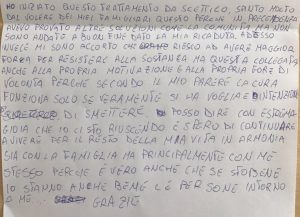 HO INIZIATO QUESTO TRATTAMENTO DA SCETTICO, SANTO MOLTO
DAL VOLERE DEI MIEI FAMIGLIARI QUESTO PERCHÈ IN PRECEDENZA
AVEVO PROVATO ALTRE SOLUZIONI COME LA COMUNITÀ MA NON
SONO ANDATE A BUON FINE VISTO LA MIA RICADUTA, ADESSO
INVECE MI SONO ACCORTO CHE RIESCO AD AVERE MAGGIOR
FORZA PER RESISTERE ALLA SOSTANZA MA QUESTA COLLEGATA
ANCHE ALLA PROPRIA MOTIVAZIONE E ALLA PROPRIA FORZA DI
VOLONTÀ PERCHÈ SECONDO IL MIO PARERE LA CURA
FUNZIONA SOLO SE VERAMENTE SI HA VOGLIA E INTENZIONE
DI SMETTERE. POSSO DIRE CON ESTREMA
GIOIA CHE IO CI STO RIUSCENDO E SPERO DI CONTINUARE
A VIVERE PER IL RESTO DELLA MIA VITA IN ARMONIA
SIA CON LA FAMIGLIA MA PRINCIPALMENTE CON ME
STESSO PERCHÈ È VERO ANCHE CHE SE STO BENE
IO STANNO ANCHE BENE LE PERSONE INTORNO
A ME... GRAZIE